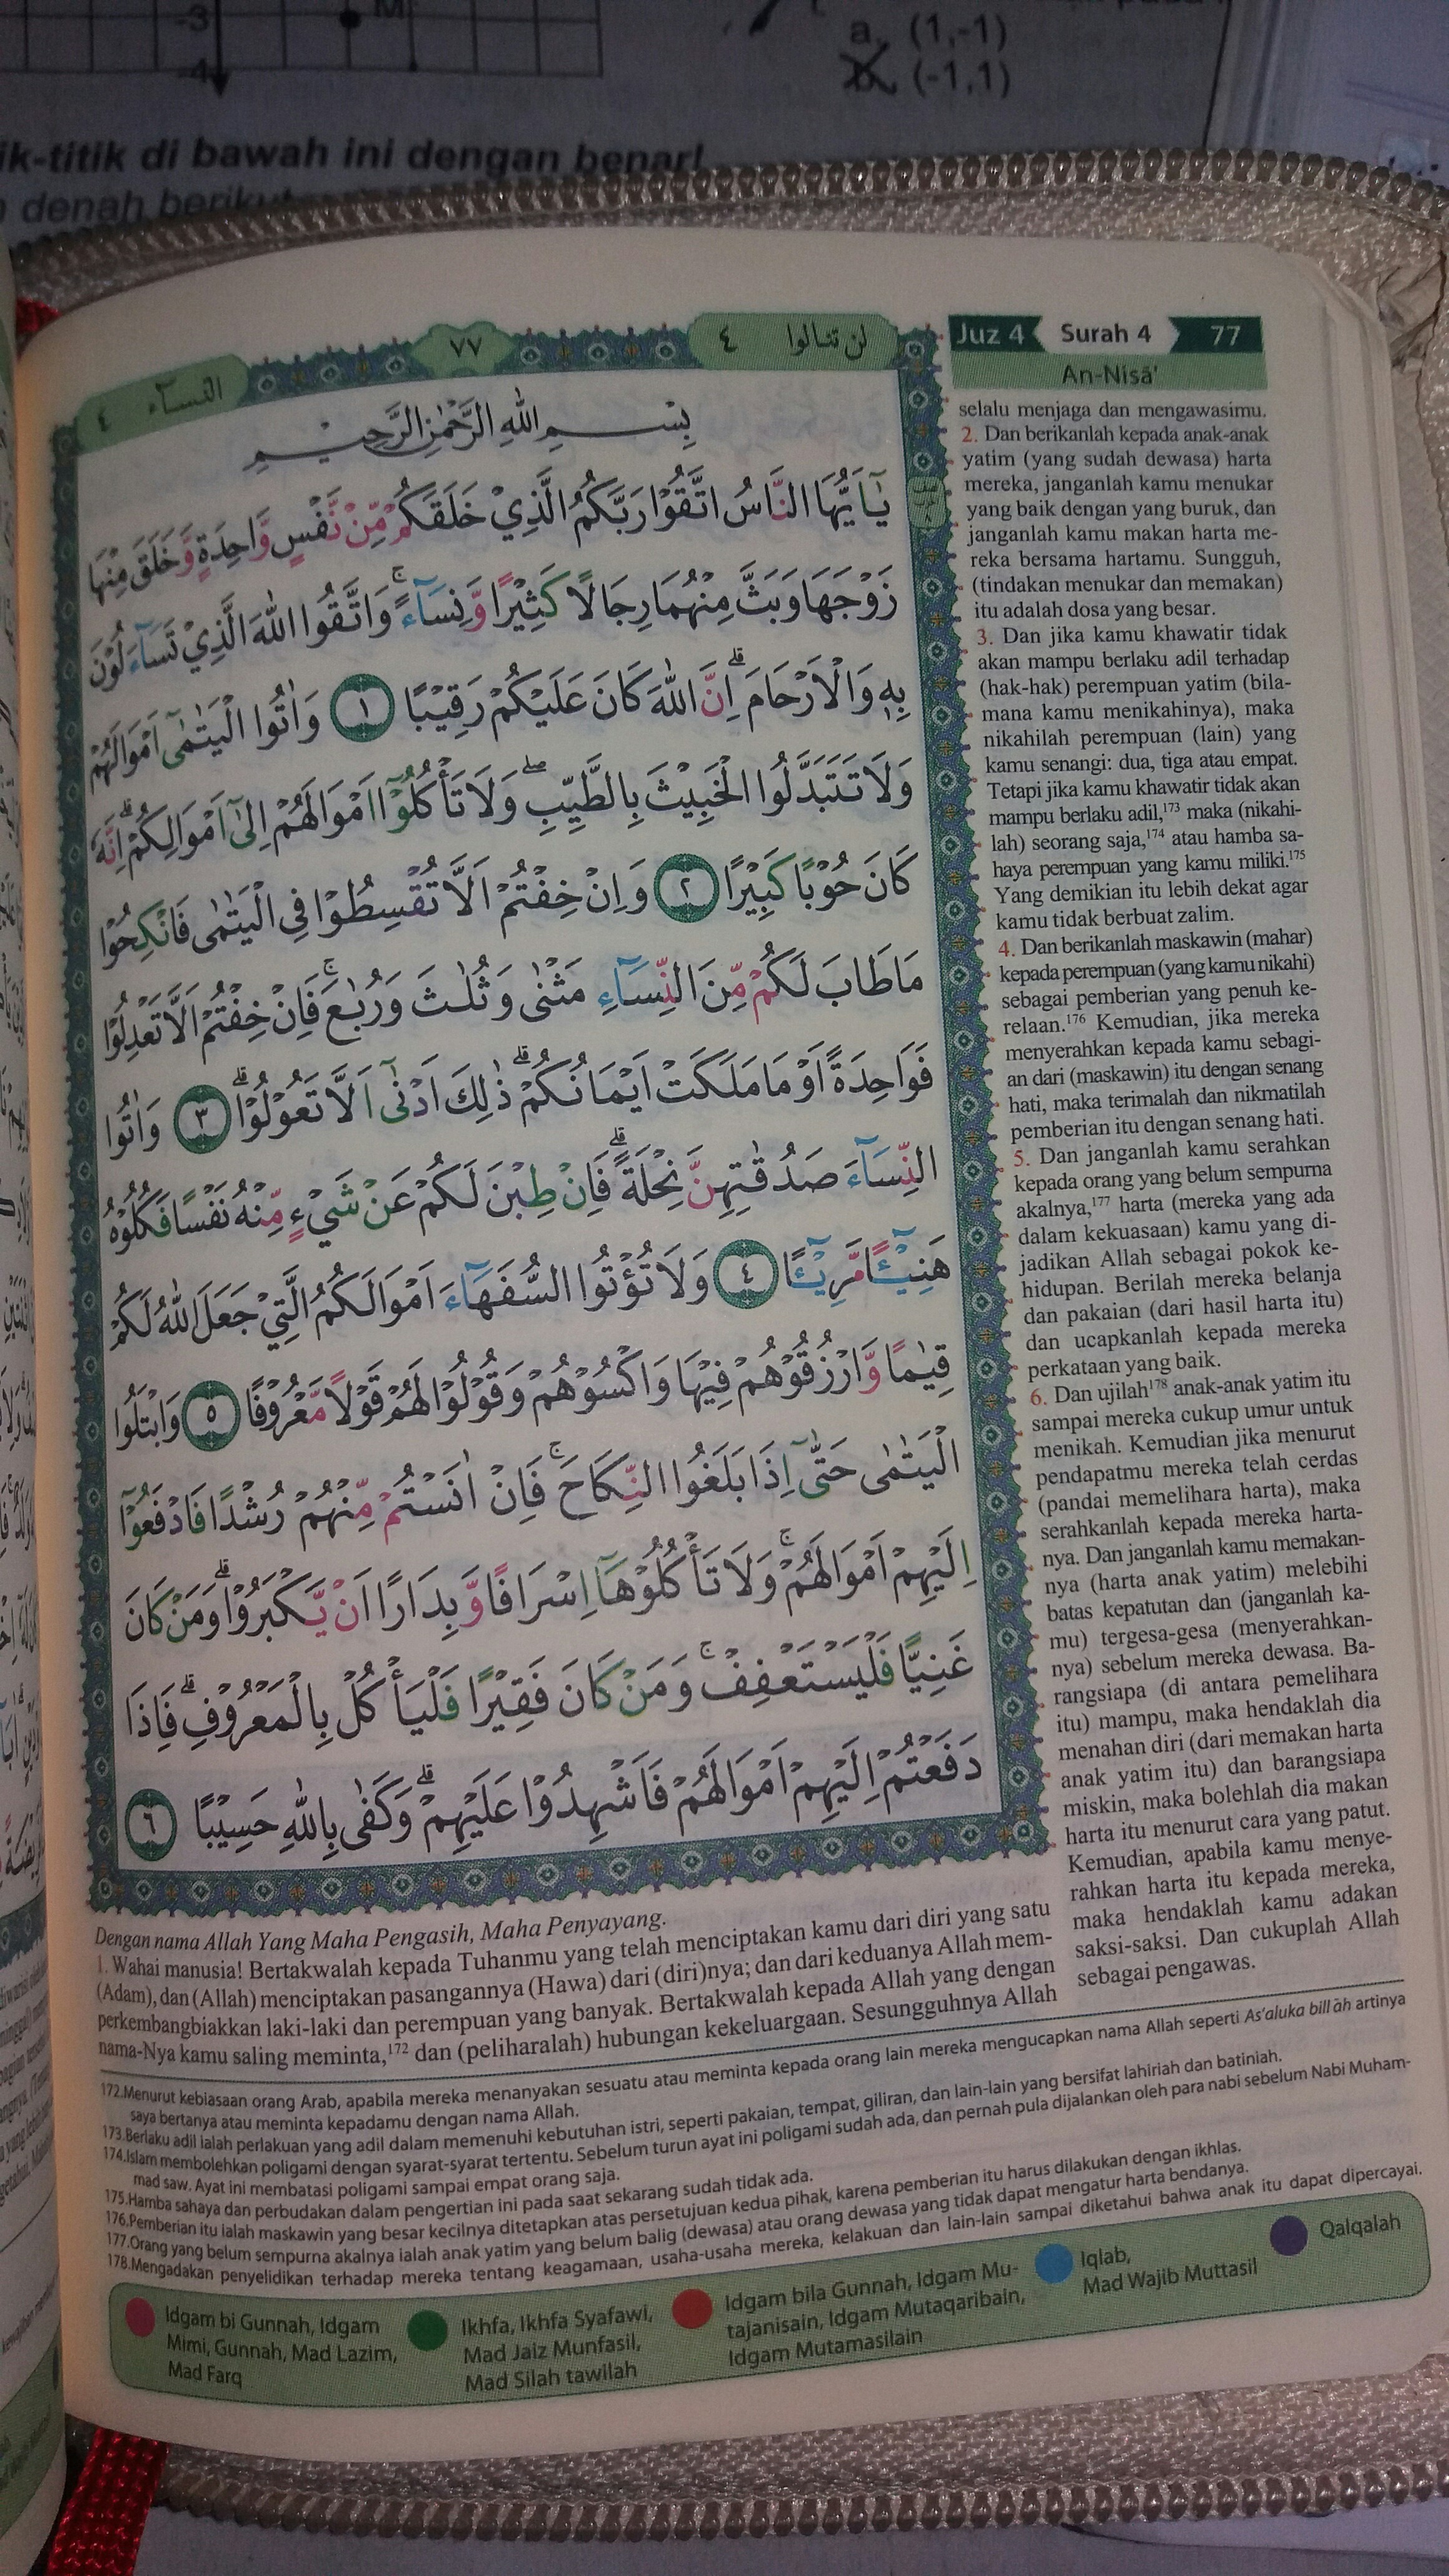 -3
M
-4
a. (1,-1)
b. (-1,1)
ik-titik di bawah ini dengan benar!
denah berikut
النسآء ٤
٧٧
لن تنالوا ٤
Juz 4
Surah 4
77
An-Nisā'
بِسْمِ اللّٰهِ الرَّحْمٰنِ الرَّحِيْمِ
يٰٓاَيُّهَا النَّاسُ اتَّقُوْا رَبَّكُمُ الَّذِيْ خَلَقَكُمْ مِّنْ نَّفْسٍ وَّاحِدَةٍ وَّخَلَقَ مِنْهَا
زَوْجَهَا وَبَثَّ مِنْهُمَا رِجَالًا كَثِيْرًا وَّنِسَاۤءًۚ وَاتَّقُوا اللّٰهَ الَّذِيْ تَسَاۤءَلُوْنَ
بِهٖ وَالْاَرْحَامَۗ اِنَّ اللّٰهَ كَانَ عَلَيْكُمْ رَقِيْبًا ١ وَاٰتُوا الْيَتٰمٰىٓ اَمْوَالَهُمْ
وَلَا تَتَبَدَّلُوا الْخَبِيْثَ بِالطَّيِّبِۖ وَلَا تَأْكُلُوْٓا اَمْوَالَهُمْ اِلٰٓى اَمْوَالِكُمْۗ اِنَّهٗ
كَانَ حُوْبًا كَبِيْرًا ٢ وَاِنْ خِفْتُمْ اَلَّا تُقْسِطُوْا فِى الْيَتٰمٰى فَانْكِحُوْا
مَا طَابَ لَكُمْ مِّنَ النِّسَاۤءِ مَثْنٰى وَثُلٰثَ وَرُبٰعَۚ فَاِنْ خِفْتُمْ اَلَّا تَعْدِلُوْا
فَوَاحِدَةً اَوْ مَا مَلَكَتْ اَيْمَانُكُمْۗ ذٰلِكَ اَدْنٰٓى اَلَّا تَعُوْلُوْاۗ ٣ وَاٰتُوا
النِّسَاۤءَ صَدُقٰتِهِنَّ نِحْلَةًۗ فَاِنْ طِبْنَ لَكُمْ عَنْ شَيْءٍ مِّنْهُ نَفْسًا فَكُلُوْهُ
هَنِيْۤـًٔا مَّرِيْۤـًٔا ٤ وَلَا تُؤْتُوا السُّفَهَاۤءَ اَمْوَالَكُمُ الَّتِيْ جَعَلَ اللّٰهُ لَكُمْ
قِيٰمًا وَّارْزُقُوْهُمْ فِيْهَا وَاكْسُوْهُمْ وَقُوْلُوْا لَهُمْ قَوْلًا مَّعْرُوْفًا ٥ وَابْتَلُوا
الْيَتٰمٰى حَتّٰىٓ اِذَا بَلَغُوا النِّكَاحَۚ فَاِنْ اٰنَسْتُمْ مِّنْهُمْ رُشْدًا فَادْفَعُوْٓا
اِلَيْهِمْ اَمْوَالَهُمْۚ وَلَا تَأْكُلُوْهَآ اِسْرَافًا وَّبِدَارًا اَنْ يَّكْبَرُوْاۗ وَمَنْ كَانَ
غَنِيًّا فَلْيَسْتَعْفِفْۚ وَمَنْ كَانَ فَقِيْرًا فَلْيَأْكُلْ بِالْمَعْرُوْفِۗ فَاِذَا
دَفَعْتُمْ اِلَيْهِمْ اَمْوَالَهُمْ فَاَشْهِدُوْا عَلَيْهِمْۗ وَكَفٰى بِاللّٰهِ حَسِيْبًا ٦
Dengan nama Allah Yang Maha Pengasih, Maha Penyayang.
1. Wahai manusia! Bertakwalah kepada Tuhanmu yang telah menciptakan kamu dari diri yang satu
(Adam), dan (Allah) menciptakan pasangannya (Hawa) dari (diri)nya; dan dari keduanya Allah mem-
perkembangbiakkan laki-laki dan perempuan yang banyak. Bertakwalah kepada Allah yang dengan
nama-Nya kamu saling meminta,¹⁷² dan (peliharalah) hubungan kekeluargaan. Sesungguhnya Allah
selalu menjaga dan mengawasimu.
2. Dan berikanlah kepada anak-anak
yatim (yang sudah dewasa) harta
mereka, janganlah kamu menukar
yang baik dengan yang buruk, dan
janganlah kamu makan harta me-
reka bersama hartamu. Sungguh,
(tindakan menukar dan memakan)
itu adalah dosa yang besar.
3. Dan jika kamu khawatir tidak
akan mampu berlaku adil terhadap
(hak-hak) perempuan yatim (bila-
mana kamu menikahinya), maka
nikahilah perempuan (lain) yang
kamu senangi: dua, tiga atau empat.
Tetapi jika kamu khawatir tidak akan
mampu berlaku adil,¹⁷³ maka (nikahi-
lah) seorang saja,¹⁷⁴ atau hamba sa-
haya perempuan yang kamu miliki.¹⁷⁵
Yang demikian itu lebih dekat agar
kamu tidak berbuat zalim.
4. Dan berikanlah maskawin (mahar)
kepada perempuan (yang kamu nikahi)
sebagai pemberian yang penuh ke-
relaan.¹⁷⁶ Kemudian, jika mereka
menyerahkan kepada kamu sebagi-
an dari (maskawin) itu dengan senang
hati, maka terimalah dan nikmatilah
pemberian itu dengan senang hati.
5. Dan janganlah kamu serahkan
kepada orang yang belum sempurna
akalnya,¹⁷⁷ harta (mereka yang ada
dalam kekuasaan) kamu yang di-
jadikan Allah sebagai pokok ke-
hidupan. Berilah mereka belanja
dan pakaian (dari hasil harta itu)
dan ucapkanlah kepada mereka
perkataan yang baik.
6. Dan ujilah¹⁷⁸ anak-anak yatim itu
sampai mereka cukup umur untuk
menikah. Kemudian jika menurut
pendapatmu mereka telah cerdas
(pandai memelihara harta), maka
serahkanlah kepada mereka harta-
nya. Dan janganlah kamu memakan-
nya (harta anak yatim) melebihi
batas kepatutan dan (janganlah ka-
mu) tergesa-gesa (menyerahkan-
nya) sebelum mereka dewasa. Ba-
rangsiapa (di antara pemelihara
itu) mampu, maka hendaklah dia
menahan diri (dari memakan harta
anak yatim itu) dan barangsiapa
miskin, maka bolehlah dia makan
harta itu menurut cara yang patut.
Kemudian, apabila kamu menye-
rahkan harta itu kepada mereka,
maka hendaklah kamu adakan
saksi-saksi. Dan cukuplah Allah
sebagai pengawas.
172.Menurut kebiasaan orang Arab, apabila mereka menanyakan sesuatu atau meminta kepada orang lain mereka mengucapkan nama Allah seperti As'aluka billāh artinya
saya bertanya atau meminta kepadamu dengan nama Allah.
173.Berlaku adil ialah perlakuan yang adil dalam memenuhi kebutuhan istri, seperti pakaian, tempat, giliran, dan lain-lain yang bersifat lahiriah dan batiniah.
174.Islam membolehkan poligami dengan syarat-syarat tertentu. Sebelum turun ayat ini poligami sudah ada, dan pernah pula dijalankan oleh para nabi sebelum Nabi Muham-
mad saw. Ayat ini membatasi poligami sampai empat orang saja.
175.Hamba sahaya dan perbudakan dalam pengertian ini pada saat sekarang sudah tidak ada.
176.Pemberian itu ialah maskawin yang besar kecilnya ditetapkan atas persetujuan kedua pihak, karena pemberian itu harus dilakukan dengan ikhlas.
177.Orang yang belum sempurna akalnya ialah anak yatim yang belum balig (dewasa) atau orang dewasa yang tidak dapat mengatur harta bendanya.
178.Mengadakan penyelidikan terhadap mereka tentang keagamaan, usaha-usaha mereka, kelakuan dan lain-lain sampai diketahui bahwa anak itu dapat dipercayai.
Idgam bi Gunnah, Idgam
Mimi, Gunnah, Mad Lazim,
Mad Farq
Ikhfa, Ikhfa Syafawi,
Mad Jaiz Munfasil,
Mad Silah tawilah
Idgam bila Gunnah, Idgam Mu-
tajanisain, Idgam Mutaqaribain,
Idgam Mutamasilain
Iqlab,
Mad Wajib Muttasil
Qalqalah